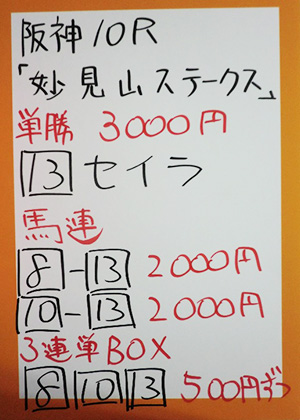 阪神10R
「妙見山ステークス」
単勝 3000円
13 セイラ
馬連
8-13 2000円
10-13 2000円
3連単BOX
8 10 13 500円ずつ